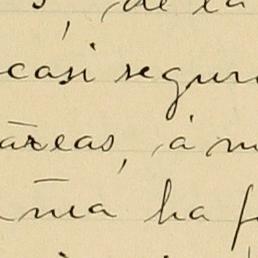 de la
casi segur
áreas, á m
ma ha f